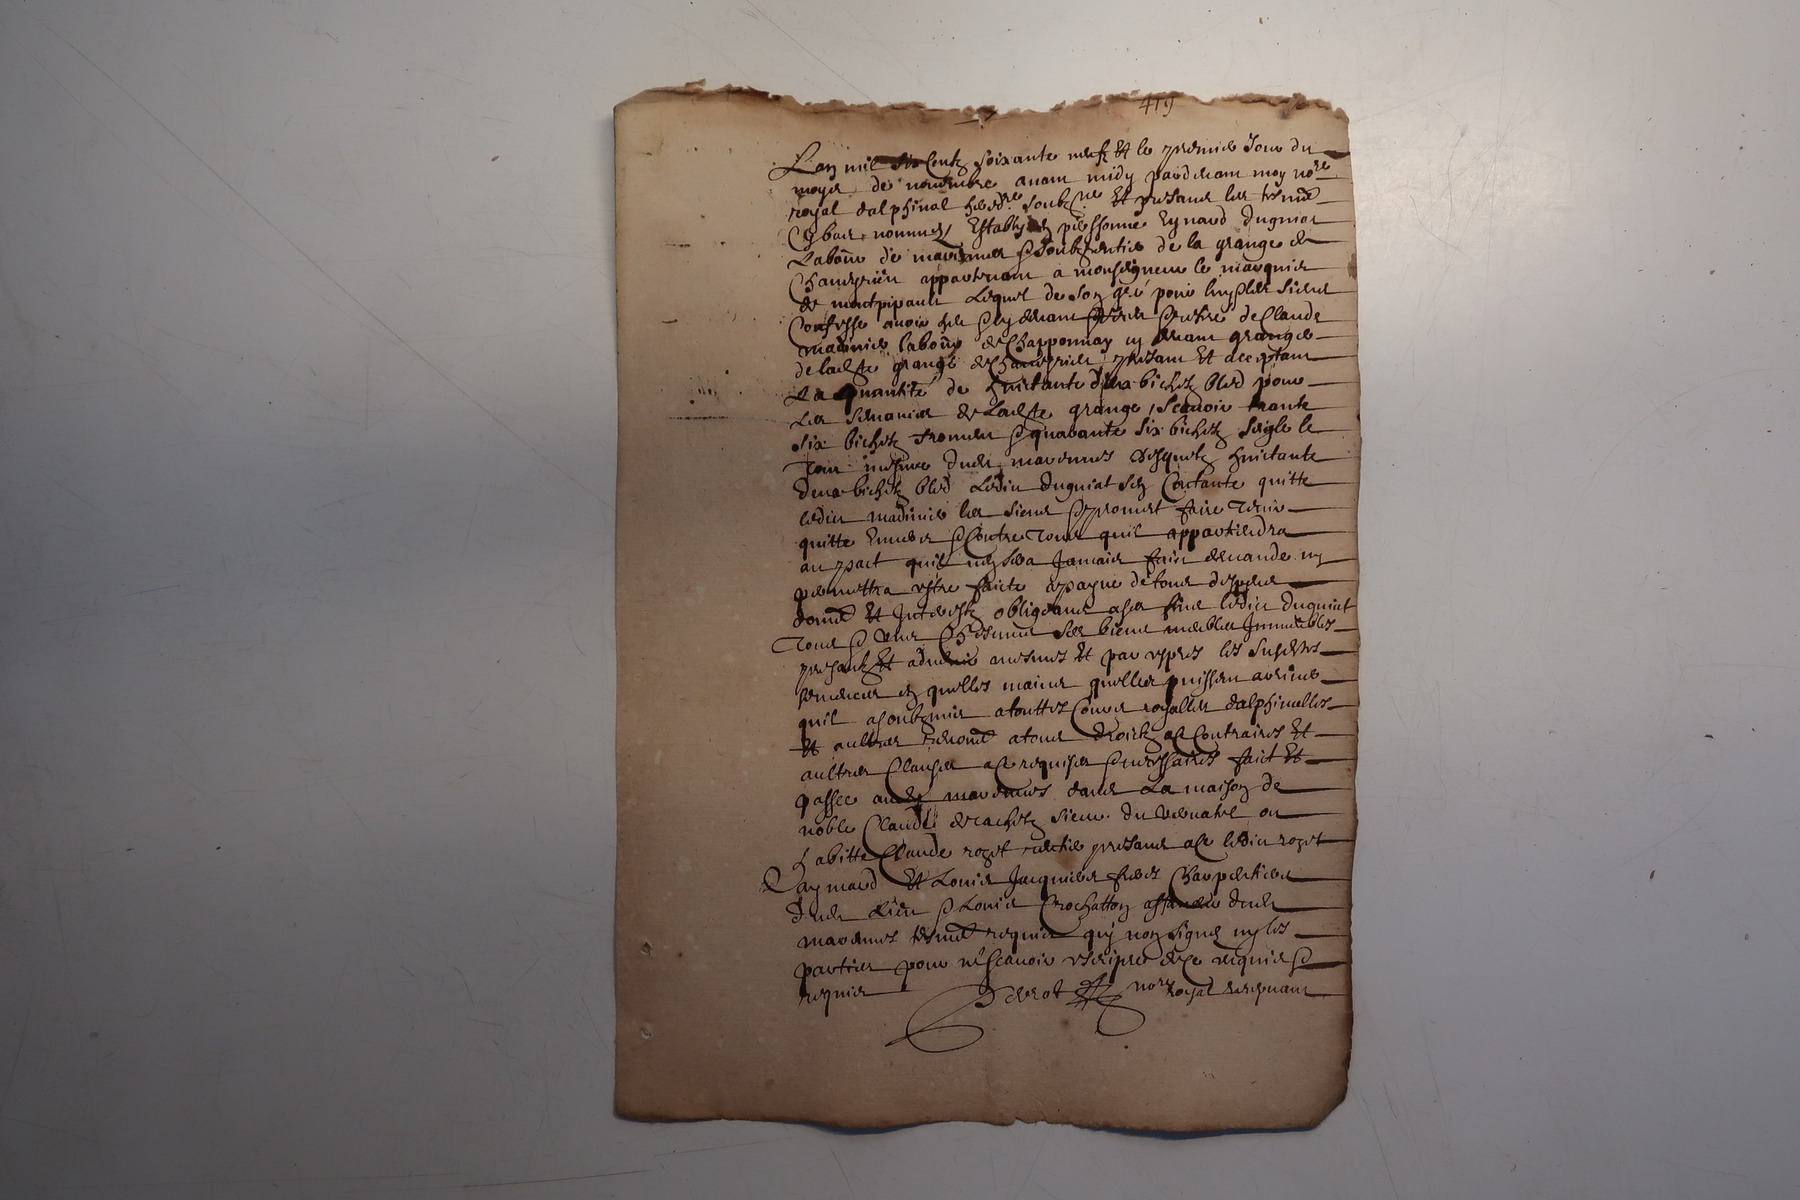 419
Lan mil six Centz soixante neuf Et le premier Jour du
moys de novembre avant midy pardevant moy nore
royal dalphinal heredre soubzne Et presans les tesmz
Cy bas nommes Estably en personne Eynard duguiat
Labour de marennes & soubzrentier de la grange de
Chaneyrieu appartenant a monseigneur le marquis
de montpipaut Lequel de son gré pour luy & les siens
Confesse avoir heu & cy devant & receu de Claude
madinier labour de Chapponnay cy devant granger
de ladte grange de Chaneyrieu present Et acceptant
La quantité de huictante deux bichetz bled pour
Les semances de Ladte grange, scavoir trante
six bichetz froment & quarante six bichetz seigle le
tout mesure dudt marennes desquelz huictante
deux bichetz bled Ledict duguiat sen Contante quitte
ledict madinier les siens & promet faire tenir
quitte Envers & Contre tous quil appartiendra
au pact quil nen sera Jamais faict demande ny
permettra estre faicte a payne de tous despens
domz Et Interestz obligeant a ses fins ledict duguiat
tous & uns Chescuns ses biens meubles Immeubles
presantz Et advenir mesmes Et par expres les susdits
en quelles mains quelles puissent arriver
quil a soubzmis a touttes Cours royalles dalphinalles
Et aultres renoncé a tous droictz a Ce Contraires Et
aultres Clauses a Ce requises & necessaires faict Et
passé audt marennes dans La maison de
noble Claude de rachetz sieur du vernatel ou
habitte Claude roget rentier presans a Ce ledict roget
Eaymard Et Louis Jacquier freres Charpentiers
dudt Lieu & Louis Crochatton affaneur dudt
marennes tesmz requis quy nont signé ny les
parties pour ne scavoir escripre de Ce requis &
requis nore royal recepvant